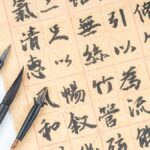 引以為流觴
無絲竹管弦
足以暢叙
氣清惠風和